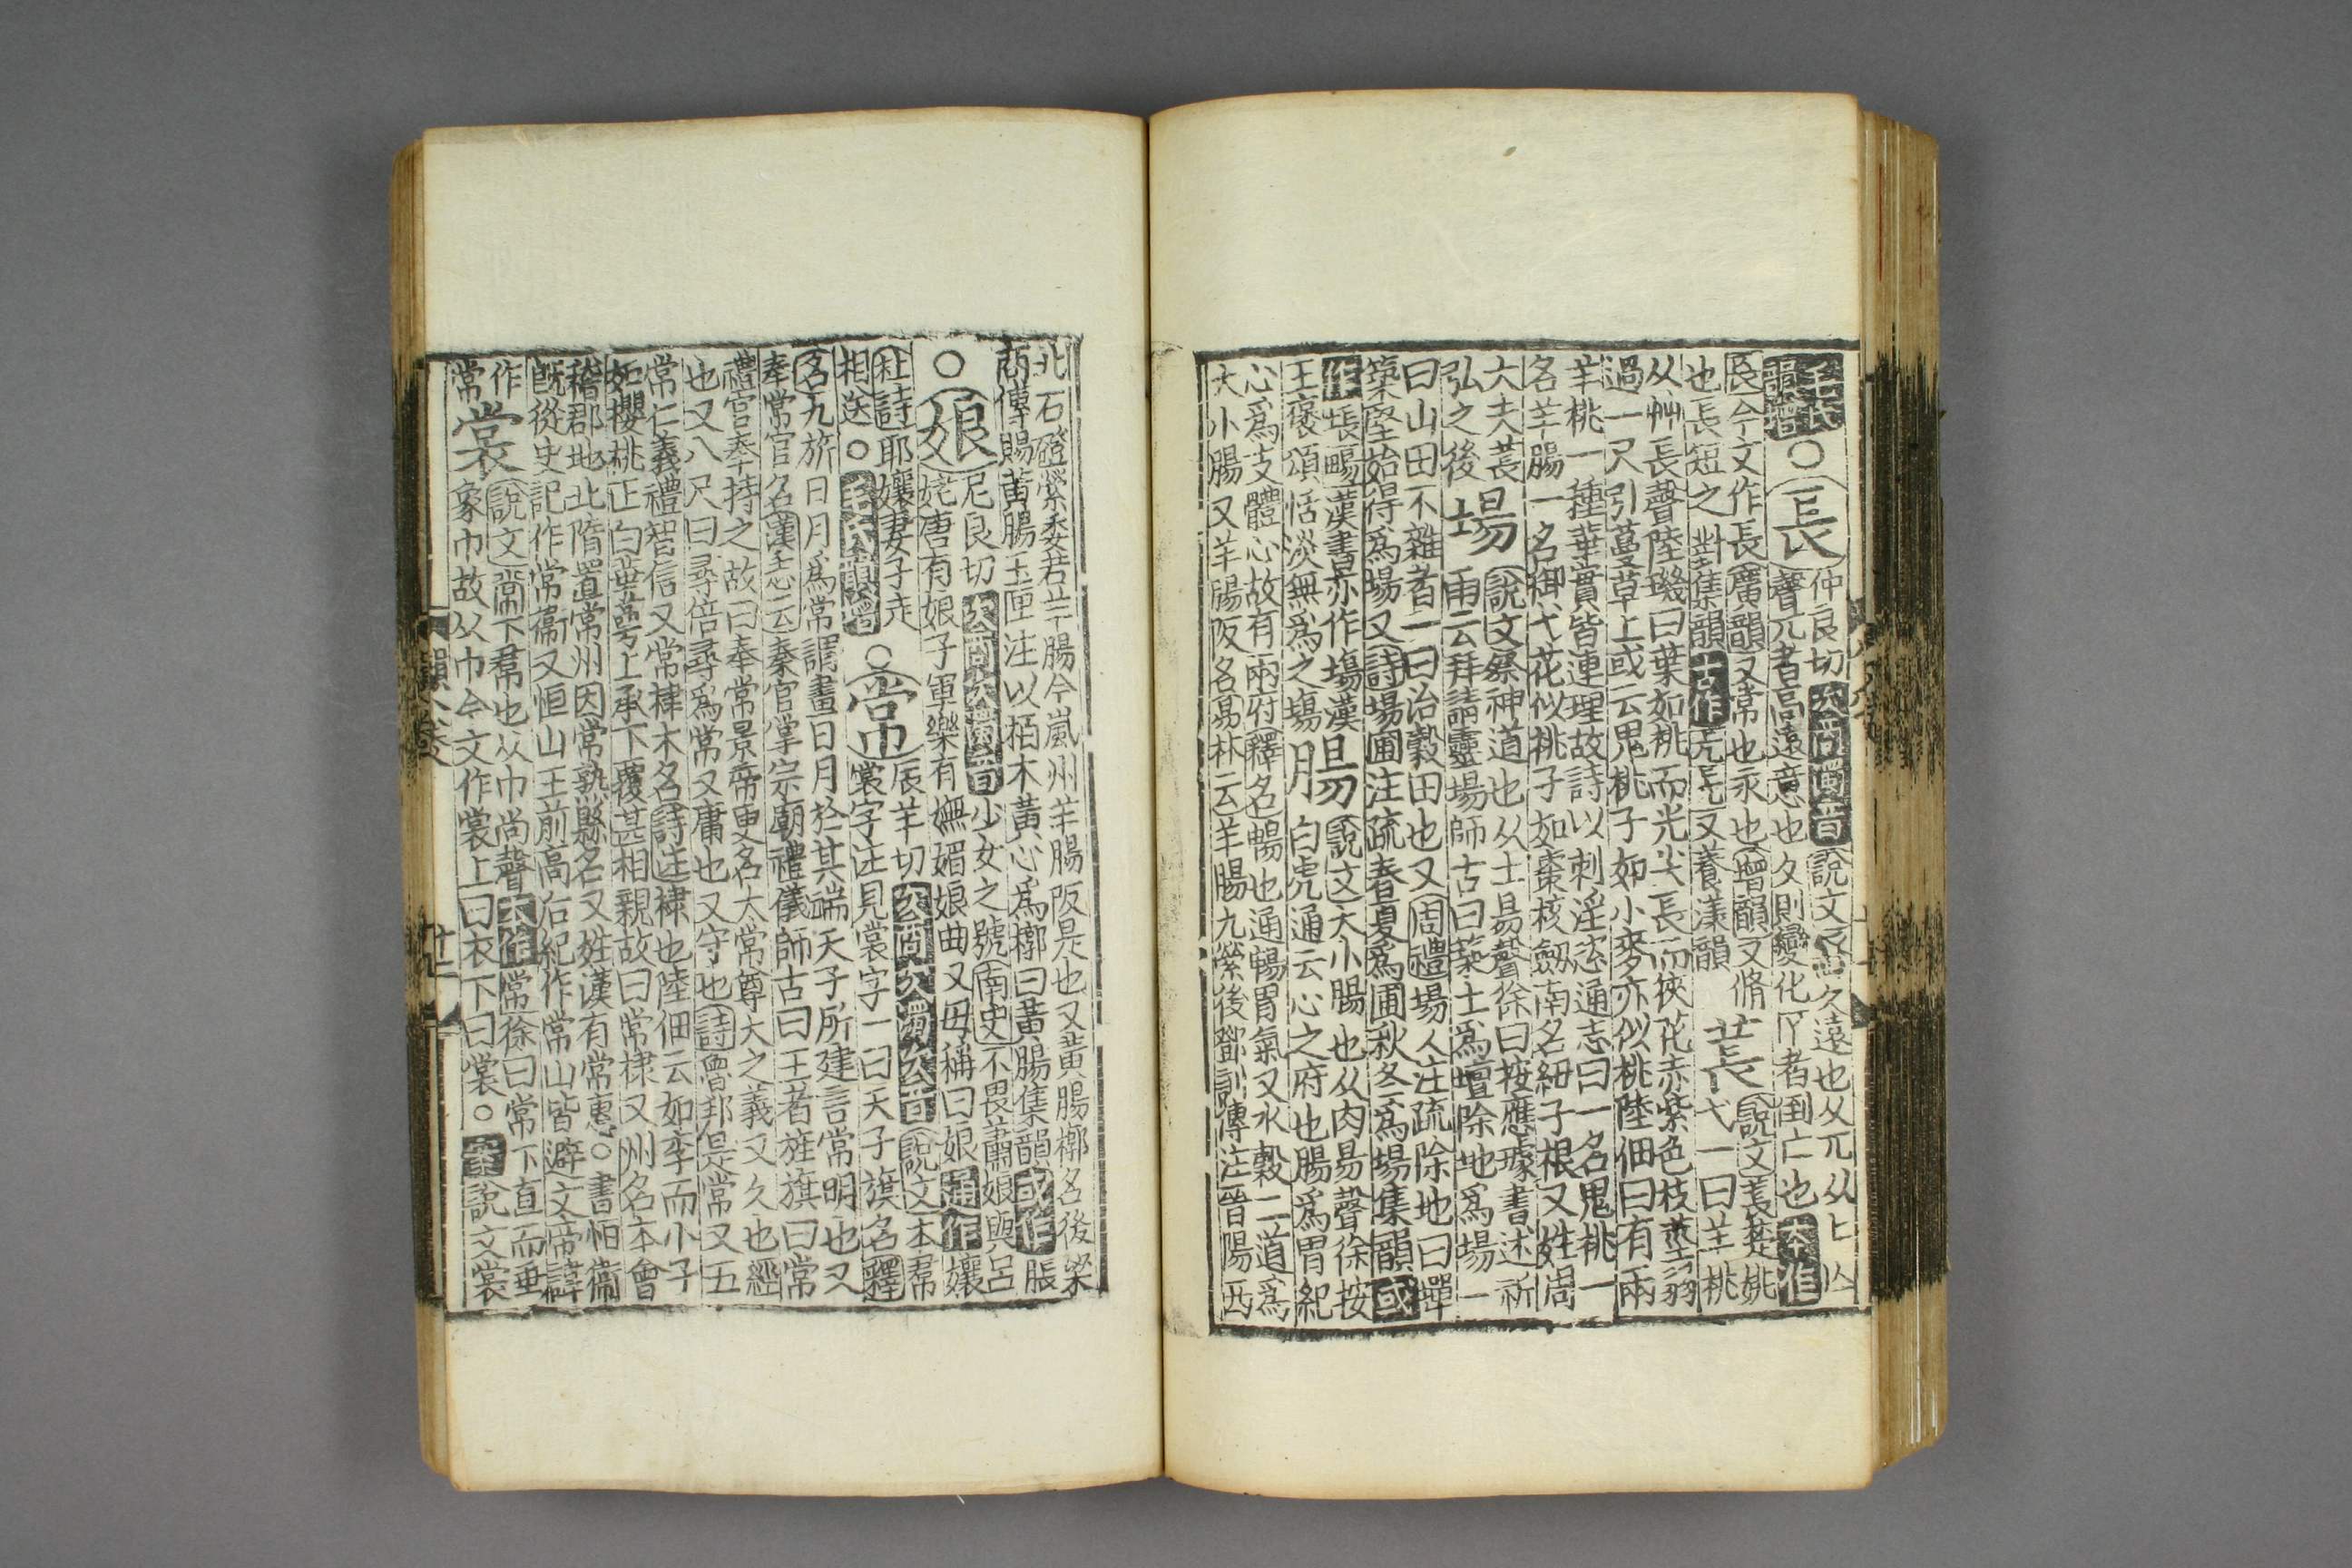 毛氏
韻增○長仲良切次商濁音說文久遠也从兀从匕亾
聲兀者高遠意也久則變化𠂆者倒亡也本作
長今文作長廣韻又常也永也增韻又脩萇說文萇楚姚
也長短之對集韻古作又養漾韻弋一曰羊桃
从艸長聲陸璣曰葉如桃而光尖長而狹花赤紫色枝莖弱
過一尺引蔓草上或云鬼桃子如小麥亦似桃陸佃曰有兩
羊桃一種葉實皆連理故詩以刺淫恣通志曰一名鬼桃一
名羊腸一名御弋花似桃子如棗核劔南名細子根又姓周
大夫萇
弘之後場說文祭神道也从土昜聲徐曰按應璩書述祈
雨云拜請靈場師古曰築土爲壇除地爲場一
曰山田不雜者一曰治穀田也又周禮場人注疏除地曰墠
築堅始得爲場又詩場圃注疏春夏爲圃秋冬爲場集韻或
作塲暢漢書亦作塲漢
王褒頌恬淡無爲之塲腸說文大小腸也从肉昜聲徐按
白虎通云心之府也腸爲胃紀
心爲支體心故有兩府釋名暢也通暢胃氣又水穀二道爲
大小腸又羊腸阪名易林云羊腸九縈後鄧訓傳注晉陽西
北石磴縈委若羊腸今嵐州羊腸阪是也又黃腸槨名後梁
商傳賜黃腸玉匣注以栢木黃心爲槨曰黃腸集韻或作脹
○娘尼良切次商次濁音少女之號南史不畏蕭娘與呂
姥唐有娘子軍樂有嫵媚娘曲又毋稱曰娘通作孃
杜詩耶孃妻子走
相送○毛氏韻增○常辰羊切次商次濁次音說文本裙
裳字注見裳字一曰天子旗名釋
名九旂日月爲常謂畫日月於其端天子所建言常明也又
奉常官名漢志云秦官掌宗廟禮儀師古曰王者旌旗曰常
禮官奉持之故曰奉常景帝更名太常尊大之義又久也經
也又八尺曰尋倍尋爲常又庸也又守也詩魯邦是常又五
常仁義禮智信又常棣木名詩注棣也陸佃云如李而小子
如櫻桃正白華萼上承下覆甚相親故曰常棣又州名本會
稽郡地北隋置常州因常熟縣名又姓漢有常惠○書怕衞
旣從史記作常衞又恒山王前高后紀作常山皆避文帝諱
作
常裳說文常下裙也从巾尚聲本作常徐曰常下直而垂
象巾故从巾今文作裳上曰衣下曰裳○案說文裳